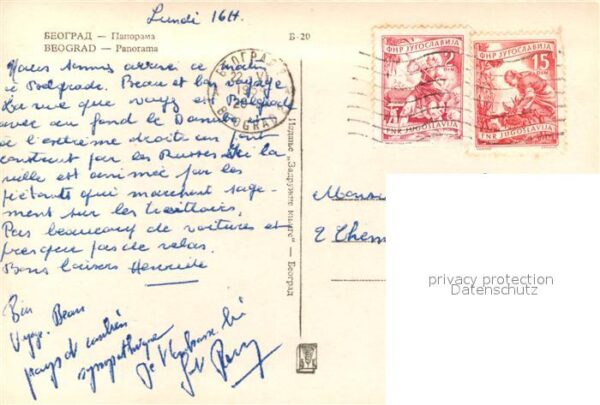 Lundi 16H.
БЕОГРАД — Панорама
BEOGRAD — Panorama
Б-20
Nous sommes arrivés ce matin
à Belgrade. Beau et bon voyage
La vue que voyez est Belgrade
avec au fond le Danube
a l'extrême droite un pont
construit par les Russes. Ici la
ville est animée par les
piétons qui marchent sage-
ment sur les trottoirs.
Pas beaucoup de voitures et
presque pas de vélos.
Bons baisers Henriette
Bon
Voyage. Beau
pays et
sympathique
Je t'embrasse
БЕОГРАД
BEOGRAD
ФНР ЈУГОСЛАВИЈА
2
ДИН
FNR JUGOSLAVIJA
ФНР ЈУГОСЛАВИЈА
15
FNR JUGOSLAVIJA
Издање „Задружне књиге“ — Београд
Monsieur
2 Chem
privacy protection
Datenschutz